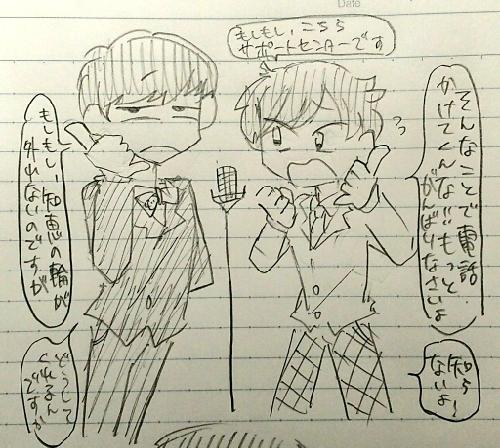 Date
もしもし、こちら
サポートセンターです
もしもし、知恵の輪が
外れないのですが
そんなことで電話
かけてくんな!!もっと
がんばりなさいよ
どうして
くれるん
ですか
知ら
ないよ〜